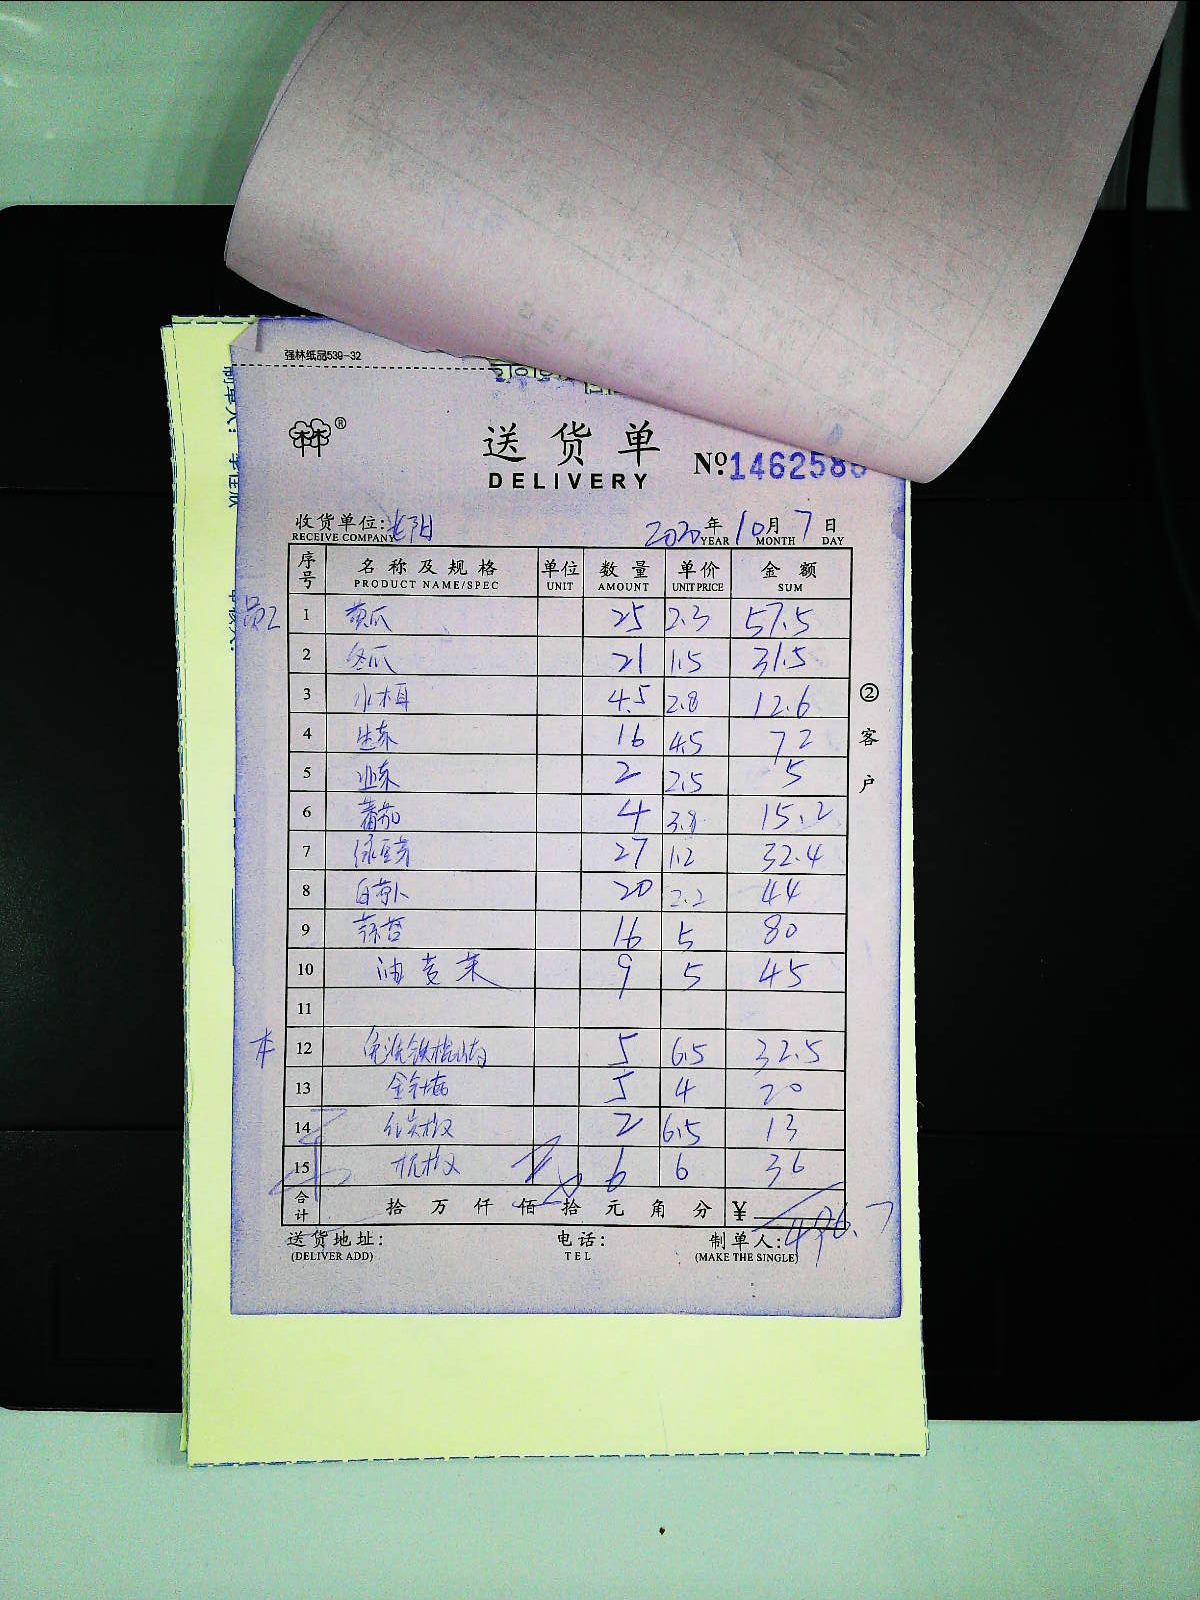 强林纸品539-32
送货单
DELIVERY
№ 1462586
收货单位:
RECEIVE COMPANY
2020年10月7日
YEAR MONTH DAY
序号 名称及规格 单位 数量 单价 金额
PRODUCT NAME/SPEC UNIT AMOUNT UNIT PRICE SUM
员工 1 黄瓜 25 2.3 57.5
2 冬瓜 21 1.5 31.5
3 水木耳 4.5 2.8 12.6
4 生菜 16 4.5 72
5 2 2.5 5
6 蕃茄 4 3.8 15.2
7 绿豆芽 27 1.2 32.4
8 白萝卜 20 2.2 44
9 蒜苔 16 5 80
10 油麦菜 9 5 45
11
本 12 5 6.5 32.5
13 金针菇 5 4 20
14 2 6.5 13
15 6 6 36
合计 拾万仟佰拾元角分 ¥ 496.7
送货地址: 电话: 制单人:
(DELIVER ADD) TEL (MAKE THE SINGLE)
②客户
制单人:
审核人: